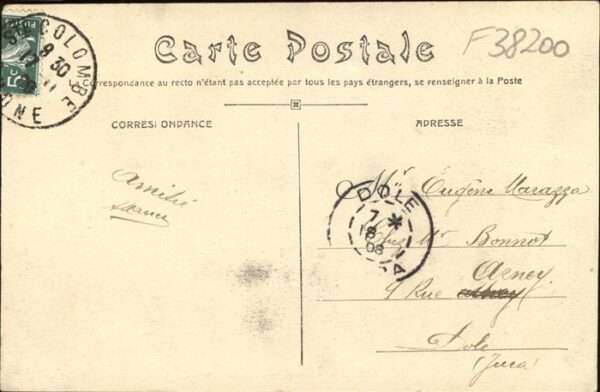 Carte Postale
F38200
La Correspondance au recto n'étant pas acceptée par tous les pays étrangers, se renseigner à la Poste
Ste COLOMBE
8 30
RHONE
5c
CORRESPONDANCE
ADRESSE
Amitié
DOLE
7 *
18
08
JURA
Mr Eugène Marazza
Chez Mr Bonnot
9 Rue Arney
Dole
(Jura)